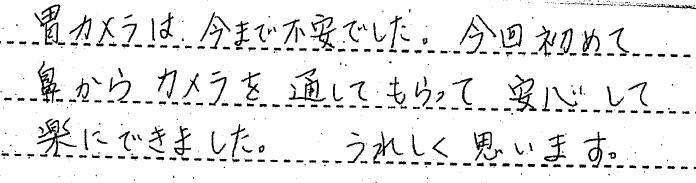 胃カメラは、今まで不安でした。今回初めて
鼻からカメラを通してもらって安心して
楽にできました。　うれしく思います。